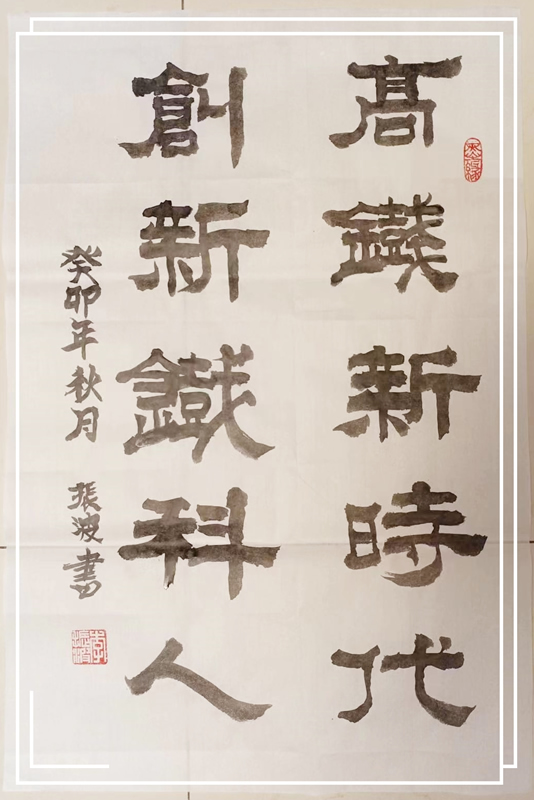 高鐵新時代
創新鐵科人
癸卯年秋月 振波書